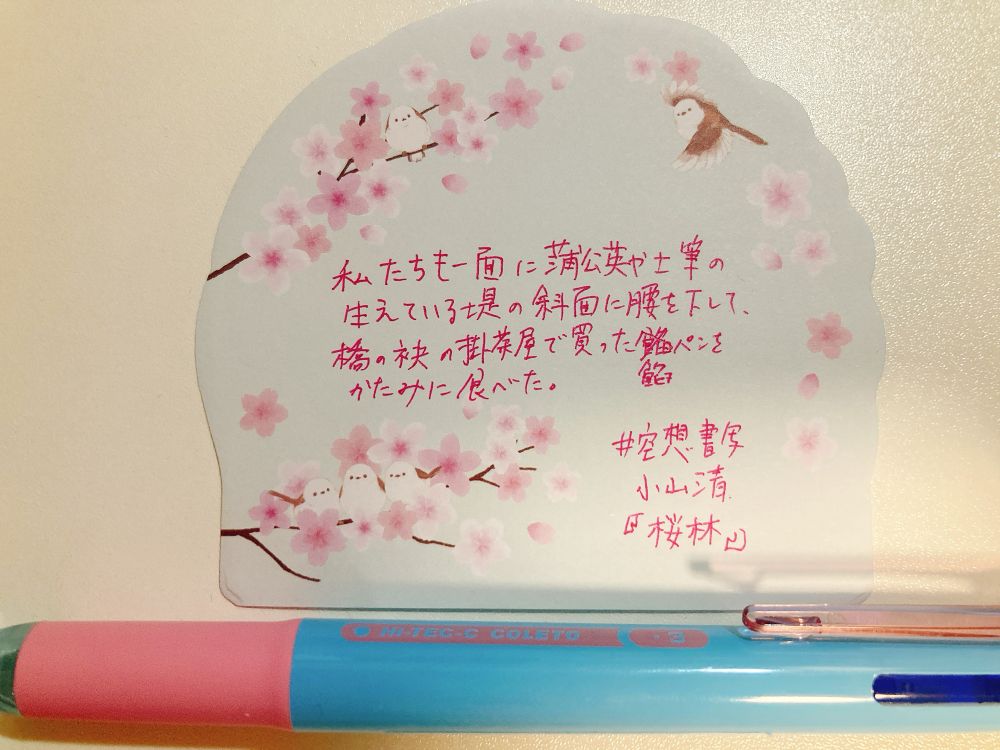 私たちも一面に蒲公英や土筆の
生えている堤の斜面に腰を下して、
橋の袂の掛茶屋で買った餡ペンを
餡
かたみに食べた。
#空想書写
小山清
『桜林』
HI-TEC-C COLETO
3